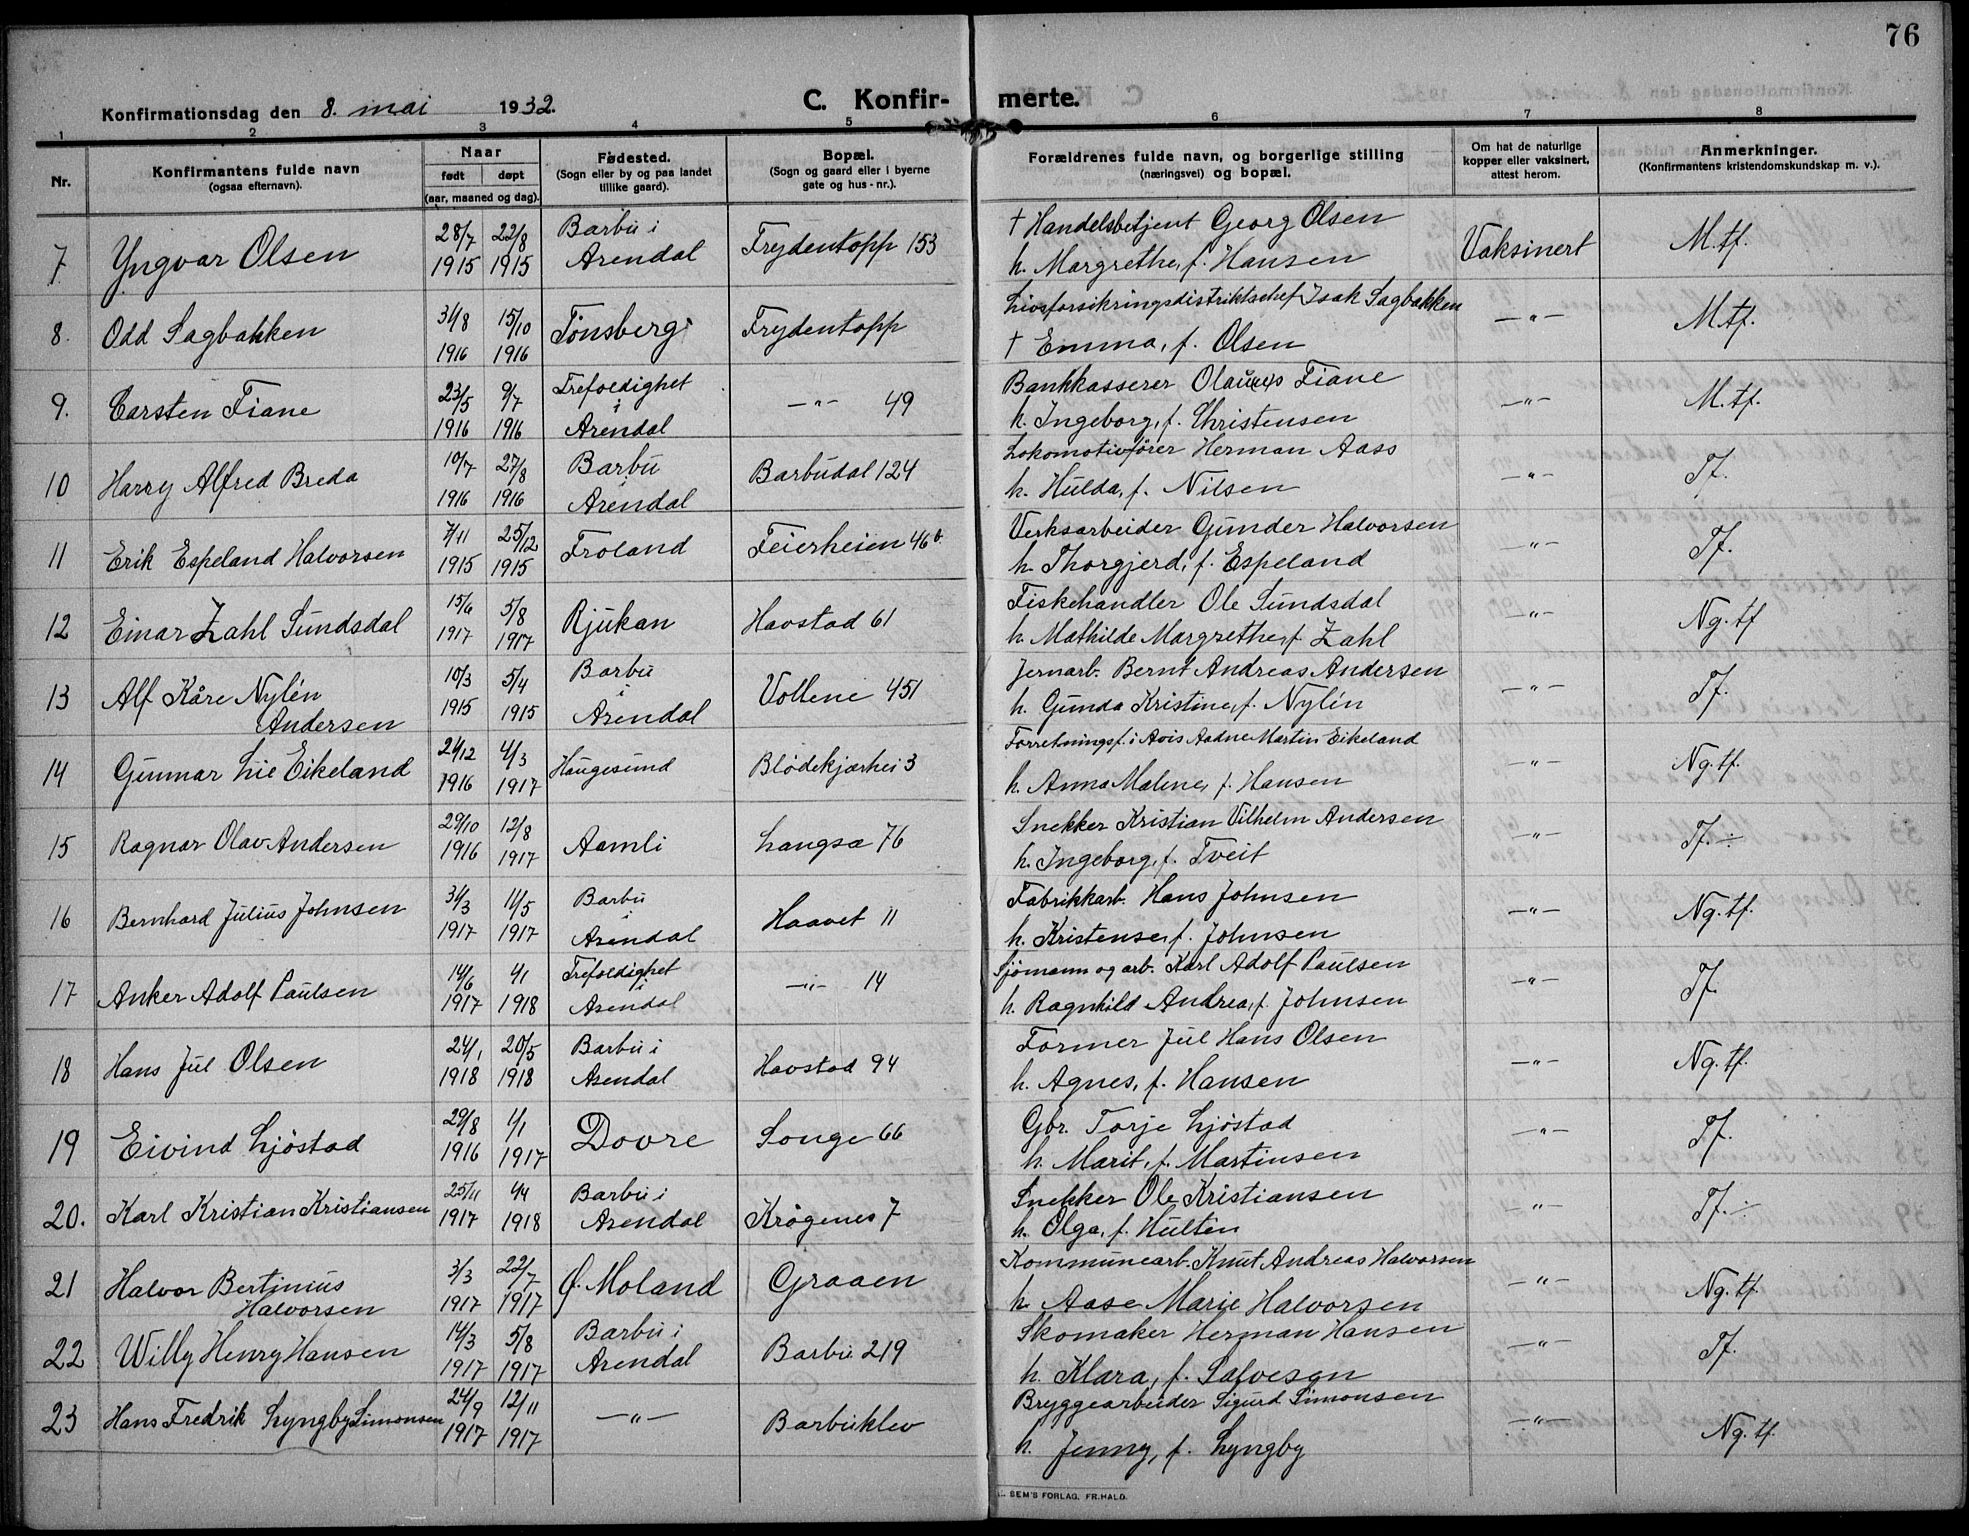 76
Konfirmationsdag den 8. mai 1932.
C. Konfir- merte.
1 2 3 4 5 6 7 8
Nr.
Konfirmantens fulde navn
(ogsaa efternavn).
Naar
født døpt
(aar, maaned og dag).
Fødested.
(Sogn eller by og paa landet
tillike gaard).
Bopæl.
(Sogn og gaard eller i byerne
gate og hus-nr.).
Forældrenes fulde navn, og borgerlige stilling
(næringsvei) og bopæl.
Om hat de naturlige
kopper eller vaksinert,
attest herom.
Anmerkninger.
(Konfirmantens kristendomskundskap m. v.).
28/7 22/8 Barbu i † Handelsbetjent Georg Olsen
7 Yngvar Olsen 1915 1915 Arendal Frydentopp 153 h. Margrethe, f. Hansen Vaksinert M.tf.
31/8 15/10 Livsforsikringsdistriktschef Isak Sagbakken
8. Odd Sagbakken 1916 1916 Tönsberg Frydentopp † Emma, f. Olsen —"— M.tf.
23/5 9/7 Trefoldighet Bankkasserer Fiane
9. Carsten Fiane 1916 1916 i Arendal —"— 49 h. Ingeborg, f. Christensen —"— M.tf.
10/7 27/8 Barbu Lokomotivfører Herman Aass
10 Harry Alfred Breda 1916 1916 i Arendal Barbudal 124 h. Hulda, f. Nilsen —"— Tf.
7/11 25/12 Verksarbeider Gunder Halvorsen
11 Erik Espeland Halvorsen 1915 1915 Froland Feierheien 46b. h. Thorgjerd, f. Espeland —"— Tf.
15/6 5/8 Fiskehandler Ole Sundsdal
12 Einar Zahl Sundsdal 1917 1917 Rjukan Havstad 61 h. Mathilde Margrethe, f. Zahl —"— Ng.tf
10/3 5/4 Barbu Jernarb. Bernt Andreas Andersen
13 Alf Kåre Nylén Andersen 1915 1915 i Arendal Vollene 451 h. Gunda Kristine, f. Nylén —"— Tf.
21/12 4/3 Forretningsf. i Avis Aadne Martin Eikeland
14 Gunnar Lie Eikeland 1916 1917 Haugesund Blödekjærhei 3 h. Anna Malene, f. Hansen —"— Ng.tf.
29/10 12/8 Snekker Kristian Vilhelm Andersen
15 Ragnar Olav Andersen 1916 1917 Aamli Langsa 76 h. Ingeborg, f. Tveit —"— Tf. ÷
31/3 11/5 Barbu Fabrikkarb. Hans Johnsen
16 Bernhard Julius Johnsen 1917 1917 i Arendal Haavet 11 h. Kristense, f. Johnsen —"— Ng.tf.
14/6 4/1 Trefoldighet Sjömann og arb. Karl Adolf Paulsen
17 Anker Adolf Paulsen 1917 1918 i Arendal —"— 14 h. Ragnhild Andrea, f. Johnsen —"— Tf.
24/1 20/5 Barbu i Former Jul Hans Olsen
18 Hans Jul Olsen 1918 1918 Arendal Havstad 94 h. Agnes, f. Hansen —"— Ng.tf.
29/8 1/1 Gbr. Torje Ljöstad
19 Eivind Ljöstad 1916 1917 Dovre Songe 66 h. Marit, f. Martinsen —"— Tf.
25/11 4/4 Barbu i Snekker Ole Kristiansen
20. Karl Kristian Kristiansen 1917 1918 Arendal Krögenes 7 h. Olga, f. Hultin —"— Tf. ÷
3/3 22/7 Kommunearb. Knut Andreas Halvorsen
21 Halvor Bertinius Halvorsen 1917 1917 Ø. Moland Graaen h. Aase Marie Halvorsen —"— Ng.tf.
14/3 5/8 Barbu i Skomaker Herman Hansen
22 Willy Henry Hansen 1917 1917 Arendal Barbu 219 h. Klara, f. Salvesen —"— Tf.
24/9 12/11 Bryggearbeider Sigurd Simonsen
23 Hans Fredrik Lyngby Simonsen 1917 1917 —"— Barbuklev h. Jenny, f. Lyngby —"— Ng.tf.
SEM'S FORLAG, FR.HALD.